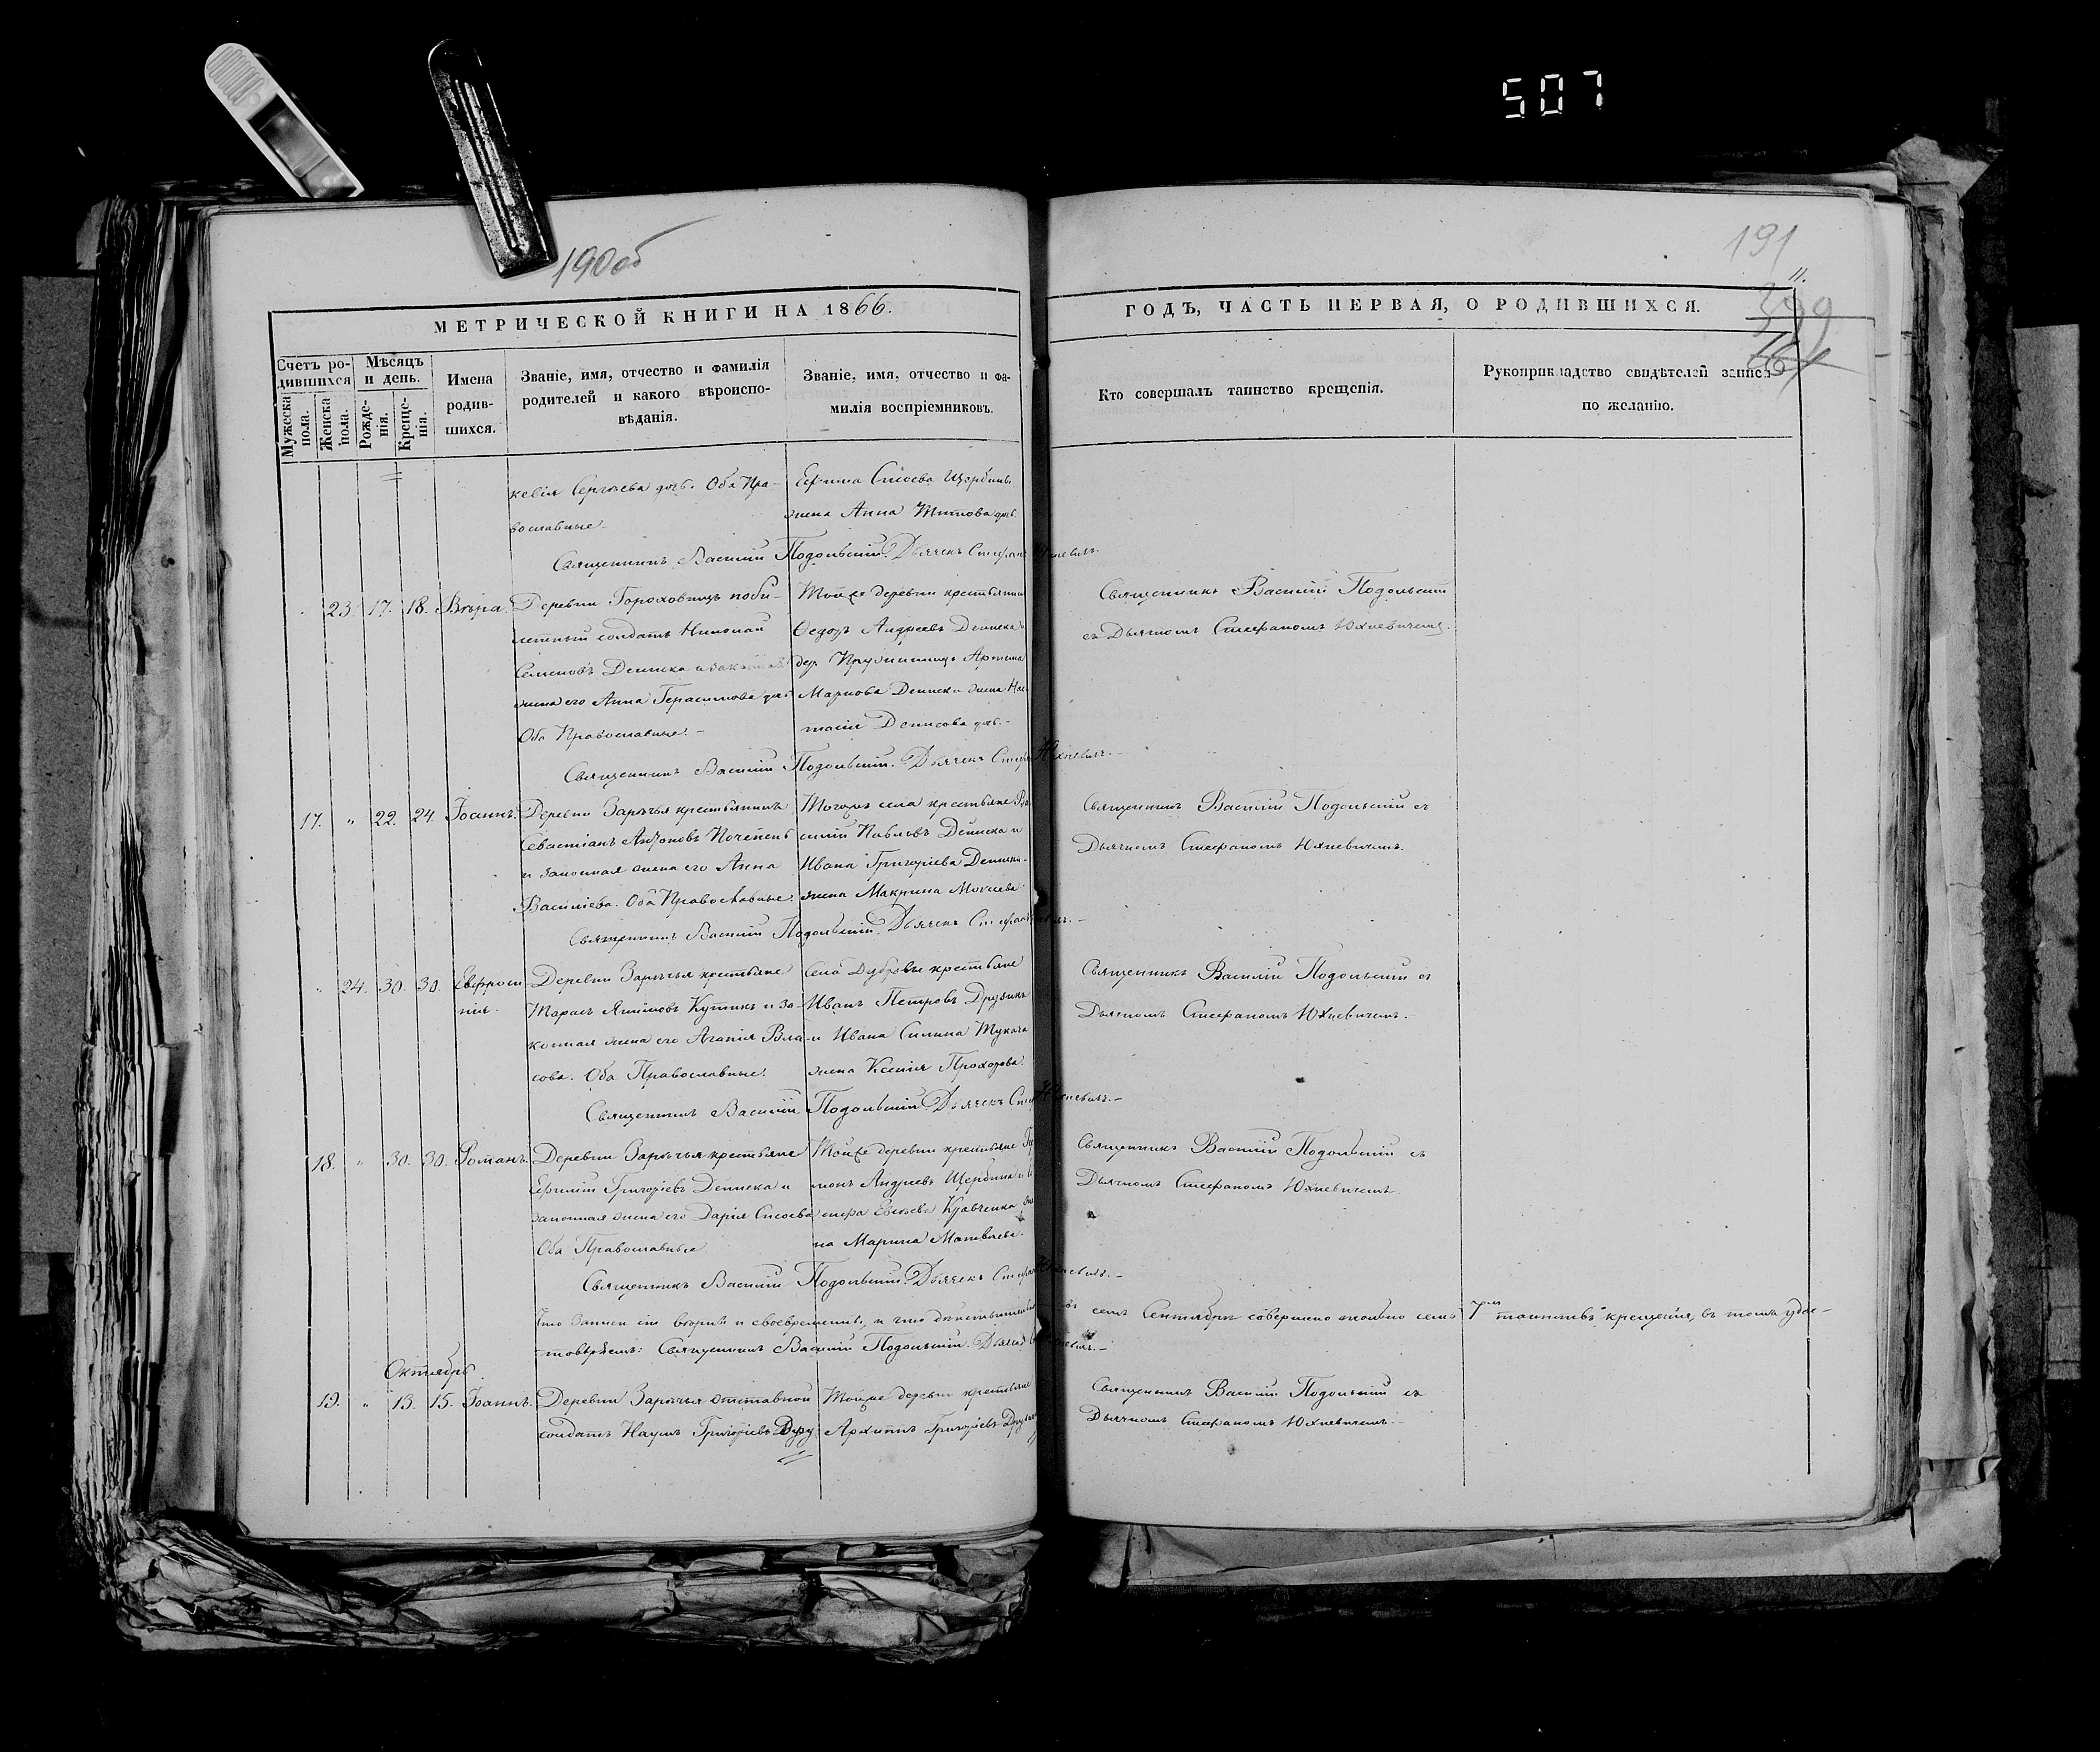 507
190об
191
11.
399
МЕТРИЧЕСКОЙ КНИГИ НА 1866.
ГОДЪ, ЧАСТЬ ПЕРВАЯ, О РОДИВШИХСЯ.
Счетъ родившихся
Мужеска пола.
Женска пола.
Мѣсяцъ и день.
Рожденія.
Крещенія.
Имена родившихся.
Званіе, имя, отчество и фамилія
родителей и какого вѣроисповѣданія.
Званіе, имя, отчество и фамилія воспріемниковъ.
Кто совершалъ таинство крещенія.
Рукоприкладство свидѣтелей записи
по желанію.
кевія Сергѣева дчь. Оба Пра-
вославные.
Сысоева Щербины
жена Анна Титова дчь.
Священникъ Василій Подольскій. Дьячекъ Стефанъ Юхневичъ.
23. 17. 18. Вѣра.
Деревни Гороховищъ
солдатъ Николай
Семеновъ Дениска и законная
жена его Анна Герасимова дчь
Оба Православные.
Тойже деревни крестьянинъ
Ѳедоръ Андреевъ Дениска
дер.
Маркова Дениски жена Нас-
тасія Денисова дчь.
Священникъ Василій Подольскій
съ Дьячкомъ Стефаномъ Юхневичемъ.
Священникъ Василій Подольскій. Дьячекъ Стефанъ Юхневичъ.
17. " 22. 24. Іоаннъ.
Деревни Зарѣчья крестьянинъ
Севастіанъ Антоновъ
и законная жена его Анна
Василіева. Оба Православные.
Тогожъ села крестьяне Ва-
силій Павловъ Дениска и
Ивана Григоріева Дениски
жена Макрина Моисеева.
Священникъ Василій Подольскій съ
Дьячкомъ Стефаномъ Юхневичемъ.
Священникъ Василій Подольскій. Дьячекъ Стефанъ Юхневичъ.
" 24. 30. 30. Евфроси-
нія.
Деревни Зарѣчья крестьяне
Тарасъ Якимовъ Кутикъ и за-
конная жена его Агапія Вла-
сова. Оба Православные.
Села Дубровы крестьяне
Иванъ Петровъ Друзикъ
и Ивана Силина Тукача
жена Ксенія Прохорова.
Священникъ Василій Подольскій съ
Дьячкомъ Стефаномъ Юхневичемъ.
Священникъ Василій Подольскій. Дьячекъ Стефанъ Юхневичъ.
18. " 30. 30. Романъ.
Деревни Зарѣчья крестьяне
Григоріевъ Дениска и
законная жена его Дарія Сысоева
Оба Православные
Тойже деревни крестьяне
Андреевъ Щербина и
Евсѣева Кравченка
на Марина Матвѣева.
Священникъ Василій Подольскій съ
Дьячкомъ Стефаномъ Юхневичемъ.
Священникъ Василій Подольскій. Дьячекъ Стефанъ Юхневичъ.
Что записи сіи вѣрны и своевременны, и что дѣйствительно въ семъ Сентябрѣ совершено только семь 7 таинствъ крещенія, въ томъ удос-
товѣряемъ: Священникъ Василій Подольскій. Дьячекъ Стефанъ Юхневичъ.
Октябрь.
19. " 13. 15. Іоаннъ.
Деревни Зарѣчья отставной
солдатъ Наумъ Григоріевъ
Тойже деревни крестьяне
Архипъ Григоріевъ
Священникъ Василій Подольскій съ
Дьячкомъ Стефаномъ Юхневичемъ.